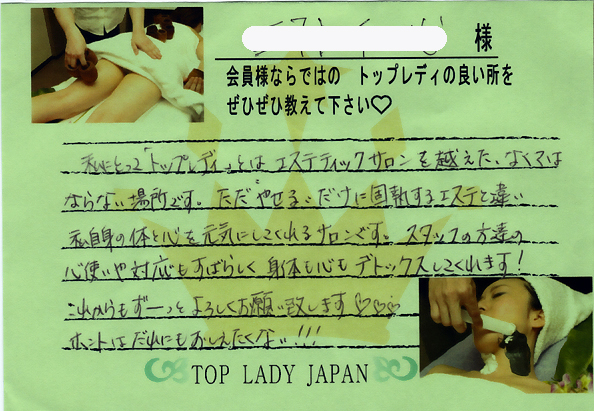 様
会員様ならではの トップレディの良い所を
ぜひぜひ教えて下さい♡
私にとって「トップレディ」とは エステティックサロンを越えた、なくては
ならない場所です。ただ"やせる"だけに固執するエステと違い
私自身の体と心を元気にしてくれるサロンです。スタッフの方達の
心使いや対応もすばらしく 身体も心も デトックスしてくれます!
これからもずーっと よろしくお願い致します♡♡♡
ホントはだれにもおしえたくない!!!
TOP LADY JAPAN